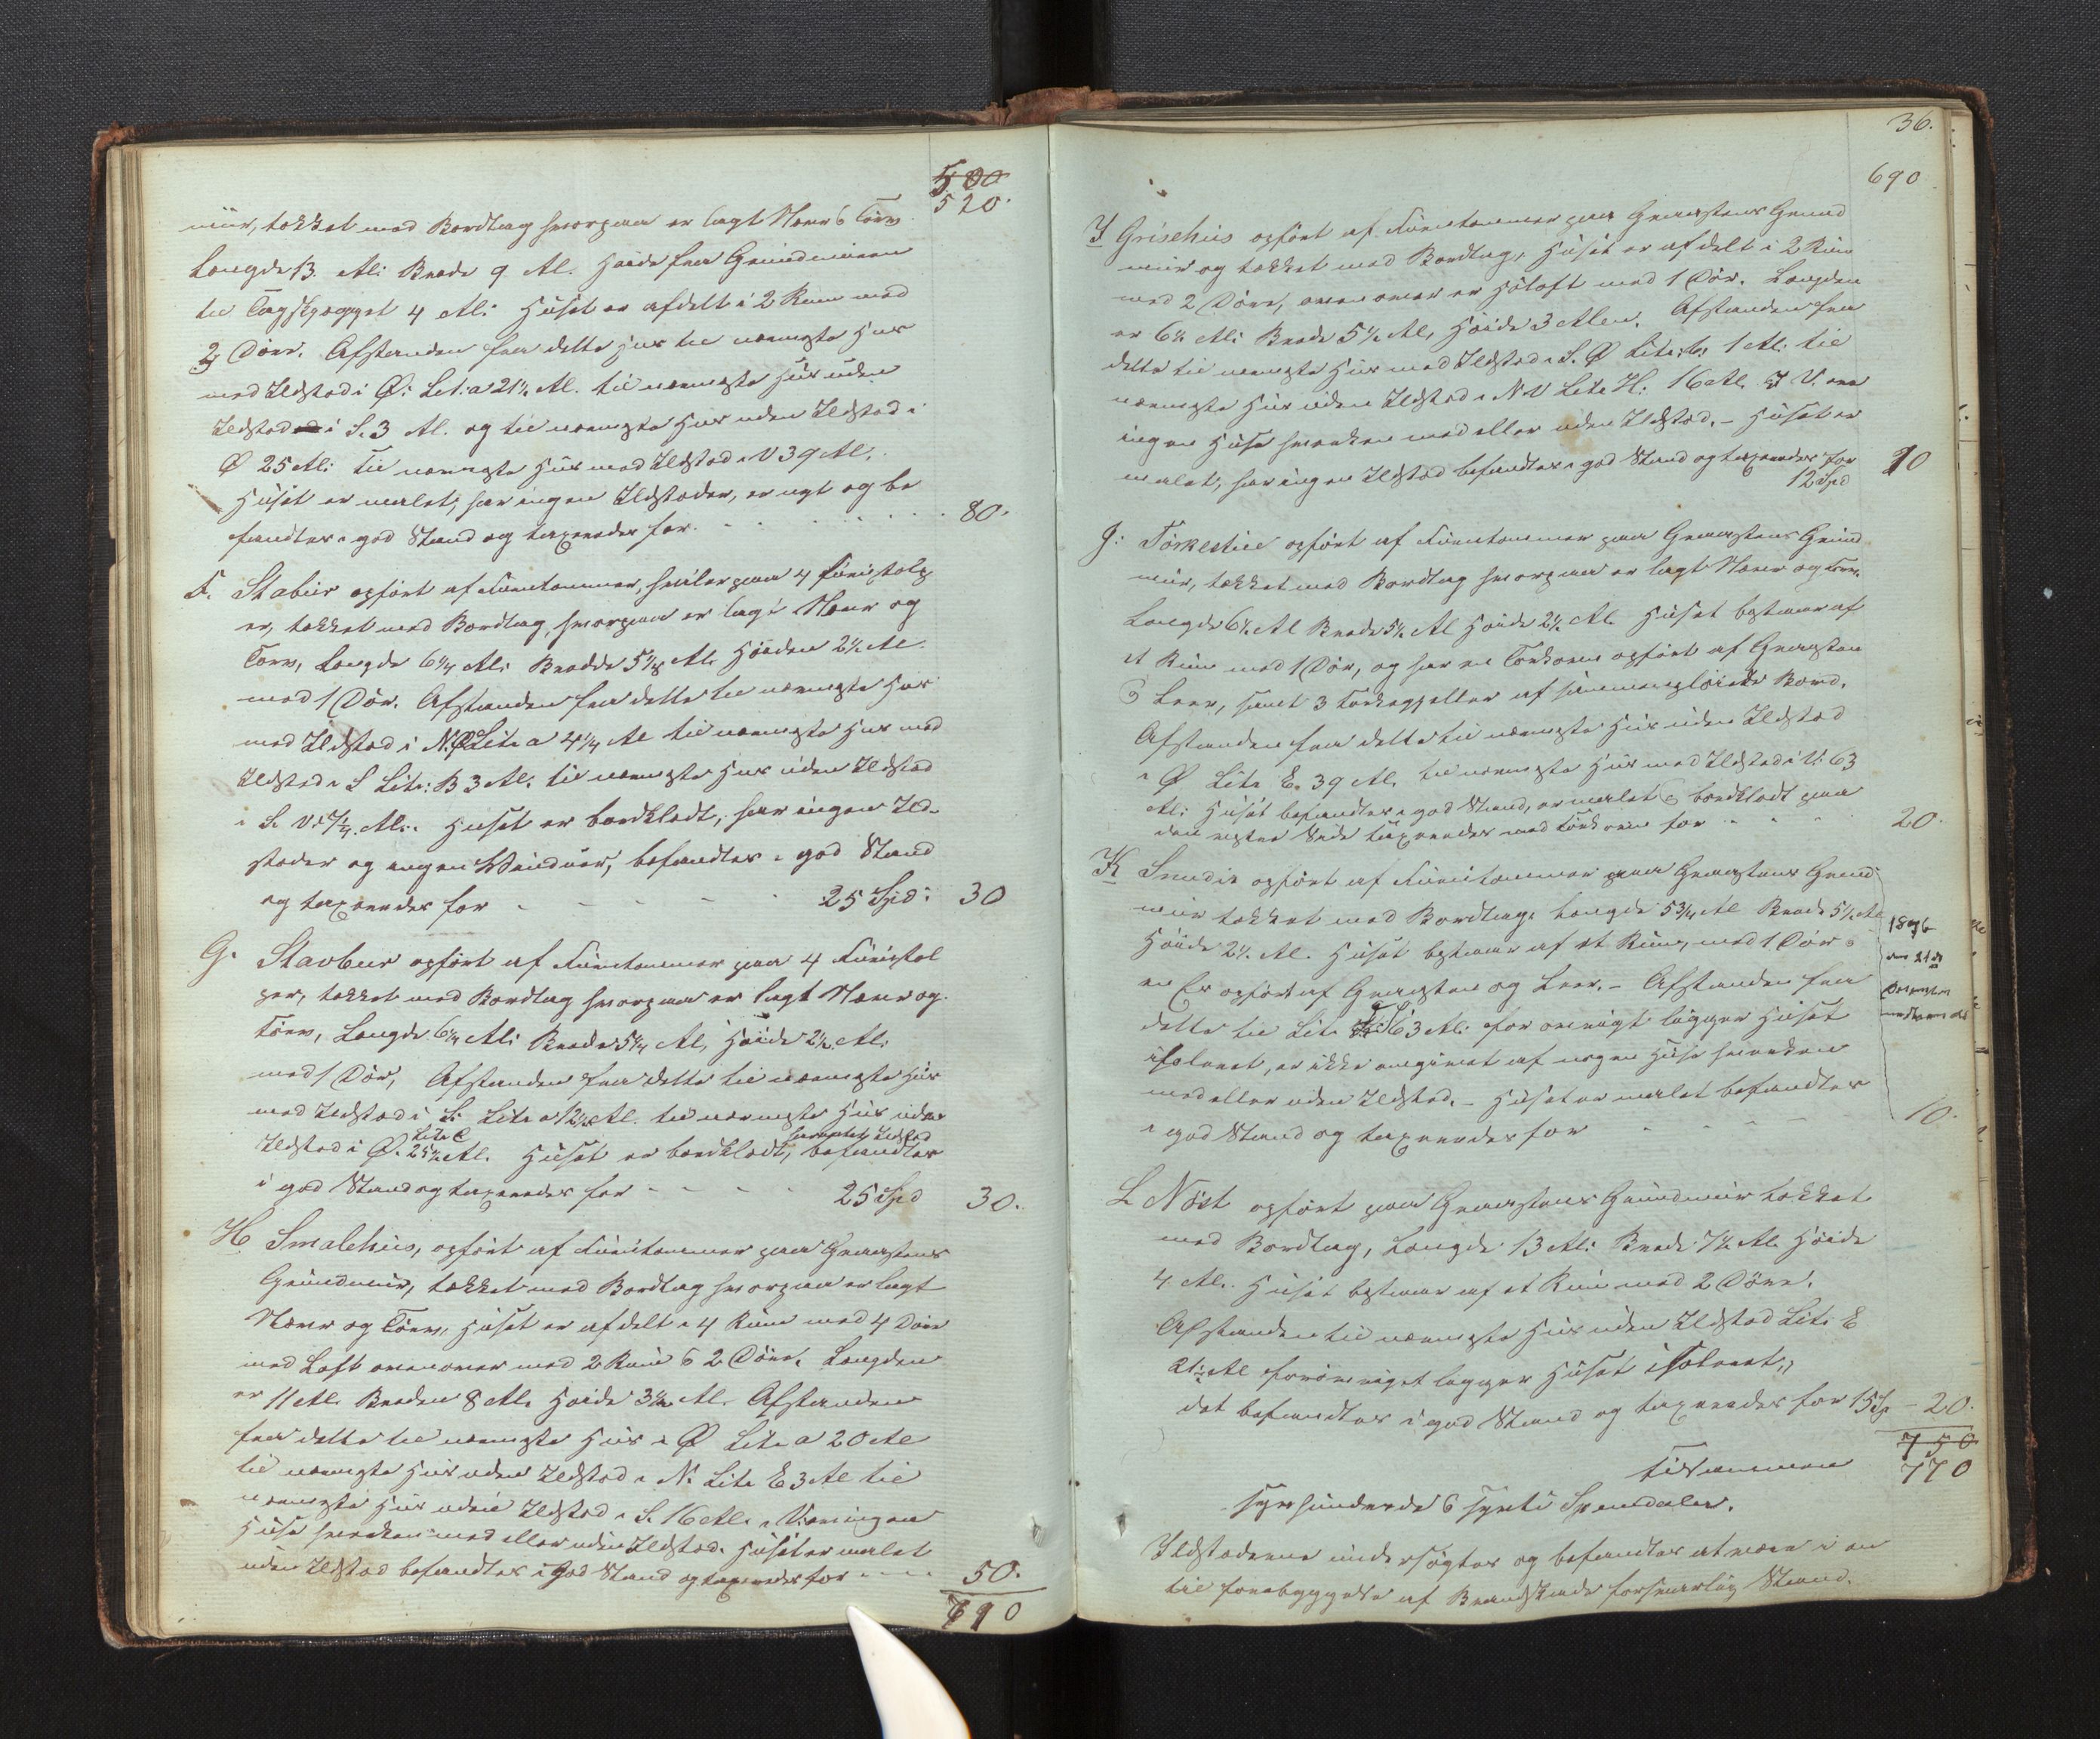 500
520.
muur, tækket med Bordtag hvorpaa er lagt Næver & Törv
Længde 13 Al: Brede 9 Al. Höide fra Grundmuren
til Tagskjægget 4 Al: Huset er afdelt i 2 Rum med
2 Döre. Afstanden fra dette Huus til nærmeste Huus
med Ildsted i Ø: Lit: a 21½ Al. til nærmeste Huus uden
Ildsted i S. 3 Al. og til nærmeste Huus uden Ildsted i
Ø 25 Al: til nærmeste Huus med Ildsted i V 39 Al.
Huset er malet, har ingen Ildsteder, er nyt og be
fandtes i god Stand og taxeredes for 80.
F. Stabur opfört af Furutömmer, hviler paa 4 Furustolp
er, tækket med Bordtag, hvorpaa er lagt Næver og
Törv, Længde 6¼ Al: Bredde 5¼ Al. Höiden 2½ Al
med 1 Dör. Afstanden fra dette til nærmeste Huus
med Ildsted i N.Ø Litr a 4¼ Al til nærmeste Huus med
Ildsted i S Litr: B 3 Al. til nærmeste Huus uden Ildsted
i S. V. 7¼ Al. Huset er bordklædt, har ingen Ild-
steder og ingen Vinduer, befandtes i god Stand
og taxeredes for 25 Spd: 30
G. Stavbur opfört af Furutömmer paa 4 Furustol
per, tækket med Bordtag hvorpaa er lagt Næver og
Törv, Længde 6¼ Al: Brede 5¼ Al, Höide 2½ Al:
med 1 Dör, Afstanden fra dette til nærmeste Huus
med Ildsted i S: Litr a 12½ Al. til nærmeste Huus uden
Litr E har intet Ildsted
Ildsted i Ø. 25½ Al. Huset er bordklædt, befandtes
i god Stand og taxeredes for 25 Spd 30.
H. Smalehuus, opfört af Furutömmer paa Graasteens
Grundmuur, tækket med Bordtag hvorpaa er lagt
Næver og Törv, Huset er afdelt i 4 Rum med 4 Döre
med Loft ovenover med 2 Rum & 2 Döre. Længden
er 11 Al. Breden 8 Al. Höide 3½ Al. Afstanden
fra dette til nærmeste Huus i Ø Litr a 20 Al
til nærmeste Huus uden Ildsted i N. Litr E 3 Al til
nærmeste Huus uden Ildsted i S. 16 Al. i V. er ingen
Huse hverken med eller uden Ildsted. Huset er malet
uden Ildsted befandtes i god Stand og taxeredes for 50.
690
36.
690
I Grisehuus opfört af Furutömmer paa Graasteens Grund
muur og tækket med Bordtag, Huset er afdelt i 2 Rum
med 2 Döre, ovenover er Höloft med 1 Dör. Længden
er 6½ Al: Brede 5½ Al, Höide 3 Alen. Afstanden fra
dette til nærmeste Huus med Ildsted i S. Ø Litr: b: 1 Al: til
nærmeste Huus uden Ildsted i N V Litr H: 16 Al. I V. ere
ingen Huse hverken med eller uden Ildsted. – Huset er
malet, har ingen Ildsted befandtes i god Stand og taxeredes for 10
12 Spd
J: Törkestue opfört af Furutömmer paa Graasteens Grund
muur, tækket med Bordtag hvorpaa er lagt Næver og Törv.
Længde 6½ Al Brede 5½ Al Höide 2½ Al. Huset bestaar af
et Rum med 1 Dör, og har en Törkovn opfört af Graasteen
& Leer, samt 3 af sammenplöiede Bord.
Afstanden fra dette til nærmeste Huus uden Ildsted
i Ø Litr E. 39 Al. til nærmeste Huus med Ildsted i V: 63
Al: Huset befandtes i god Stand, er malet & bordklædt paa
den Side taxeredes med Törkovn for 20.
K Smedie opfört af Furutömmer paa Graasteens Grund
muur tækket med Bordtag. Længde 5¾ Al Brede 5½ Al
Höide 2½ Al. Huset bestaar af et Rum, med 1 Dör &
en Es opfört af Graasteen og Leer. – Afstanden fra
dette til Litr 63 Al: for övrigt ligger Huset
isoleret, er ikke omgivet af nogen Huse hverken
med eller uden Ildsted. – Huset er malet befandtes
i god Stand og taxeredes for 10.
1896
den 21de
L Nöst opfört paa Graasteens Grundmuur tækket
med Bordtag, Længde 13 Al: Brede 7½ Al. Höide
4 Al. Huset bestaar af et Rum med 2 Döre.
Afstanden til nærmeste Huus uden Ildsted Litr E
21½ Al foröwrigt ligger Huset isoleret,
det befandtes i god Stand og taxeredes for 15 Sp – 20.
750
Tilsammen 770
Syvhundrede & Syvti Speciedaler.
Ildstederne undersögtes og befandtes at være i en
til forebyggelse af Brandskade forsvarlig Stand.